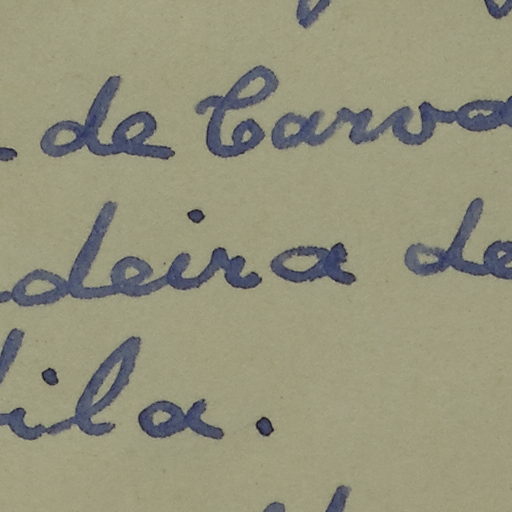 de Carva
deira de
ila.